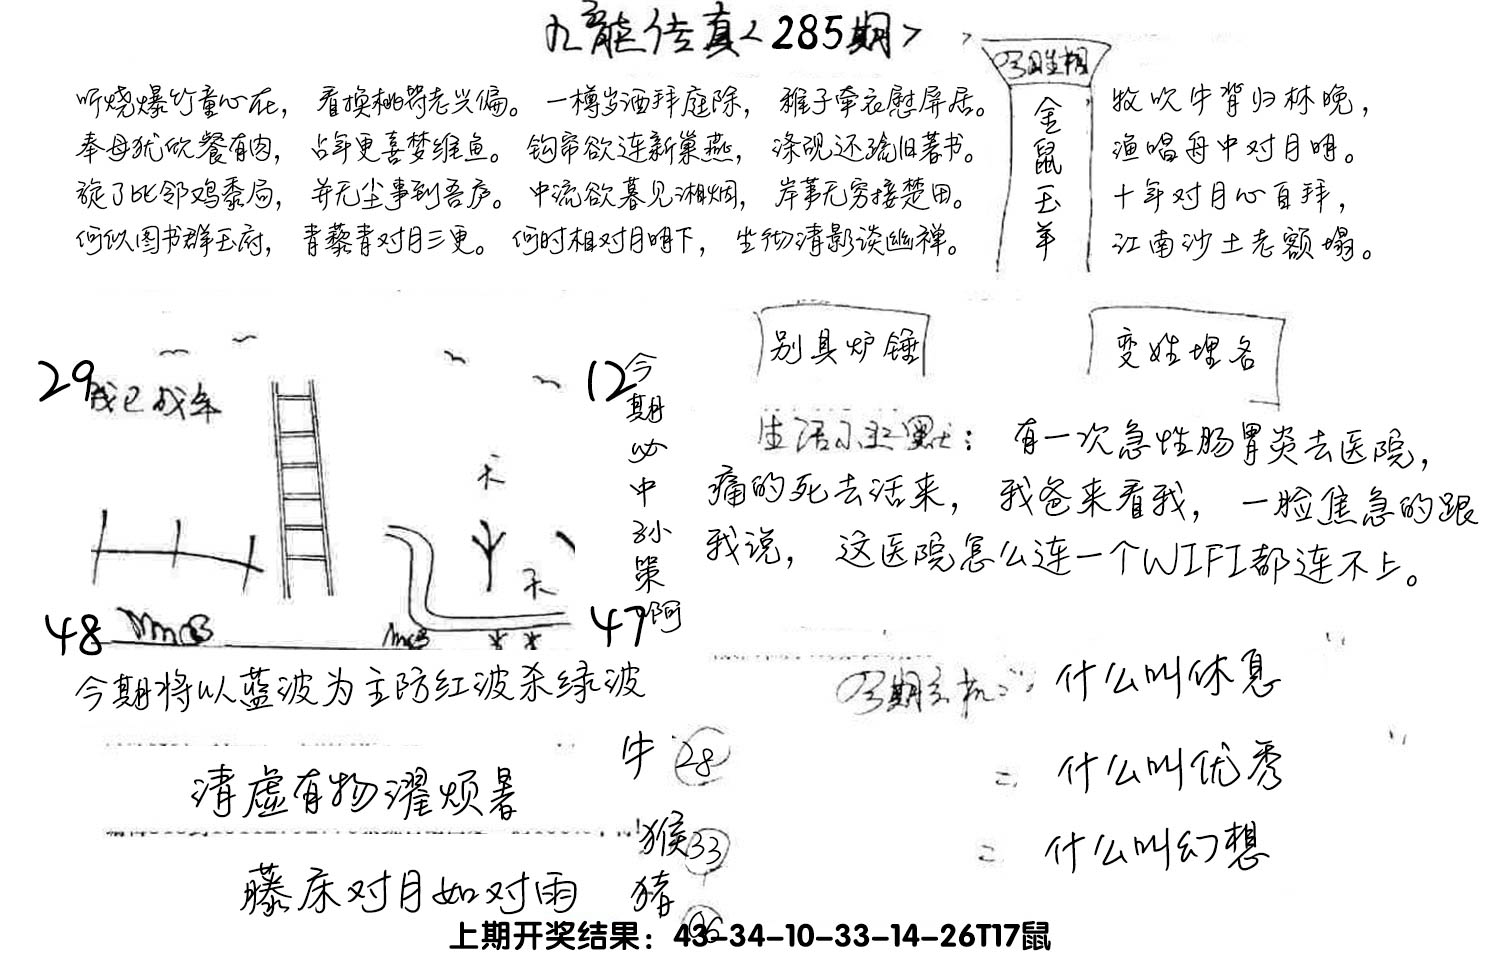 九龙传真<285期>
听烧爆竹童心在，看换桃符老兴偏。一樽岁酒拜庭除，稚子牵衣慰屏居。
奉母犹欣餐有肉，占年更喜梦维鱼。钩帘欲连新巢燕，涤砚还疏旧著书。
旋了比邻鸡黍局，并无尘事到吾庐。中流欲暮见湘烟，岸苇无穷接楚田。
何似图书群玉府，青藜青对月三更。何时相对月明下，坐彻清影谈幽禅。
今日生相
金鼠玉羊
牧吹牛背归林晚，
渔唱舟中对月明。
十年对月心自拜，
江南沙土老额塌。
29
我已成年
12
48
47
天
天
今期必中孙策啊
今期将以蓝波为主防红波杀绿波
别具炉锤
变姓埋名
生活小幽默：有一次急性肠胃炎去医院，
痛的死去活来，我爸来看我，一脸焦急的跟
我说，这医院怎么连一个WIFI都连不上。
今期玄机：什么叫休息
什么叫优秀
什么叫幻想
清虚有物濯烦暑
藤床对月如对雨
牛 28
猴 33
猪
上期开奖结果：43-34-10-33-14-26T17鼠